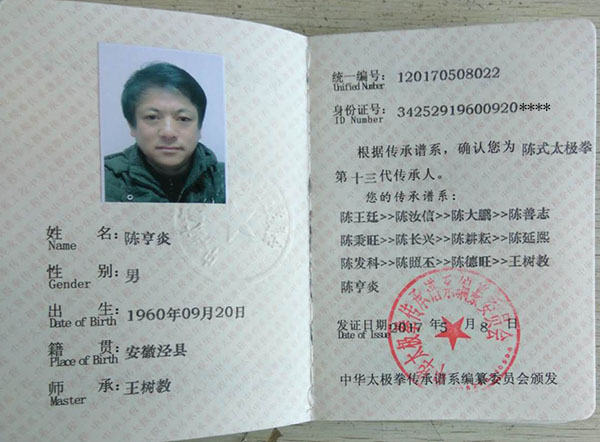 姓 名：陈亨炎
Name
性 别：男
Gender
出 生：1960年09月20日
Date of Birth
籍 贯：安徽泾县
Place of Birth
师 承：王树教
Master
统一编号：120170508022
Unified Number
身份证号：34252919600920****
ID Number
根据传承谱系，确认您为 陈式太极拳
第 十三代传承人。
您的传承谱系：
陈王廷>>陈汝信>>陈大鹏>>陈善志
陈秉旺>>陈长兴>>陈耕耘>>陈延熙
陈发科>>陈照丕>>陈德旺>>王树教
陈亨炎
发证日期：2017 年 5 月 8 日
Date of Issue
中华太极拳传承谱系编纂委员会颁发
中华太极拳传承谱系编纂委员会